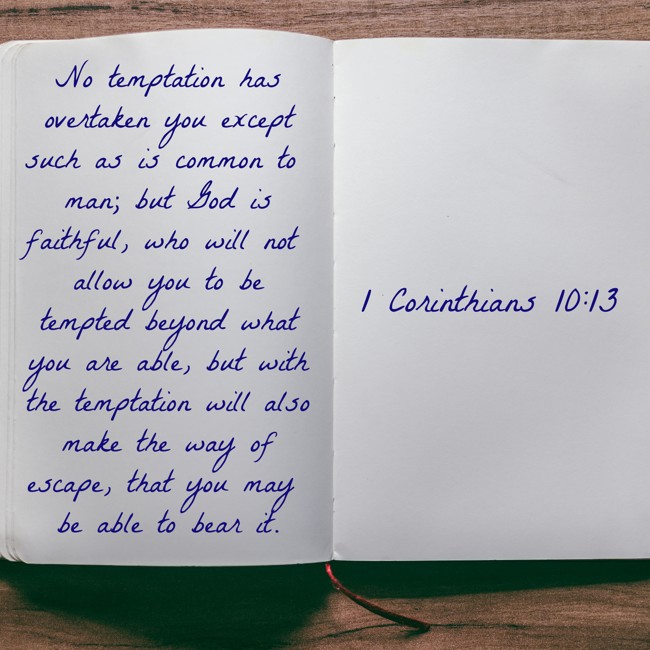 No temptation has
overtaken you except
such as is common to
man; but God is
faithful, who will not
allow you to be
tempted beyond what
you are able, but with
the temptation will also
make the way of
escape, that you may
be able to bear it.
1 Corinthians 10:13